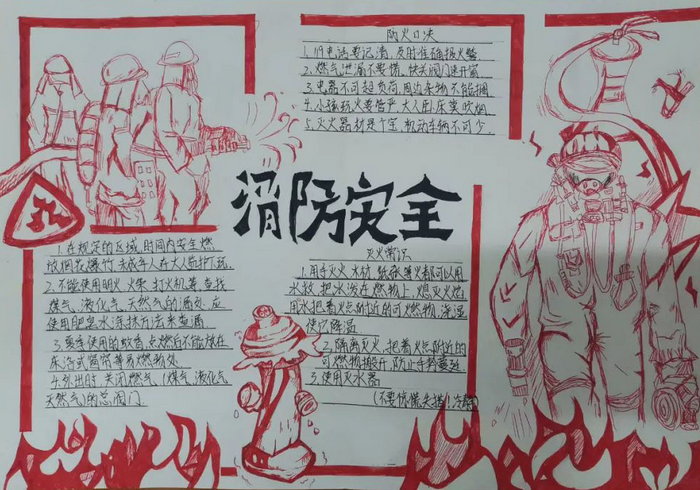 防火口诀
1.119电话要记清 及时准确报火警
2.燃气泄漏不要慌 快关阀门速开窗
3.电器不可超负荷 周边杂物不能拥
4.小孩玩火要管严 大人卧床莫吸烟
5.灭火器材是个宝 机动车辆不可少
消防安全
1.在规定的区域,时间内安全燃
放烟花爆竹 未成年人在大人监护下玩
2.不能使用明火 火柴 打火机等 查找
煤气 液化气 天然气的漏处 应
使用肥皂水涂抹方法来查漏
3.夏季使用的蚊香 点燃后不能放在
床沿或窗帘等易燃物处
4.外出时 关闭燃气(煤气 液化气
天然气)的总阀门
灭火常识
1.用水灭火 木材 纸张等火都可以用
水救 把水浇在燃物上 熄灭火焰
用水把着火点附近的可燃物浇湿
使它降温
2.隔离灭火 把着火点附近的
可燃物搬开 防止火势蔓延
3.使用灭火器
(不要惊慌失措!冷静)